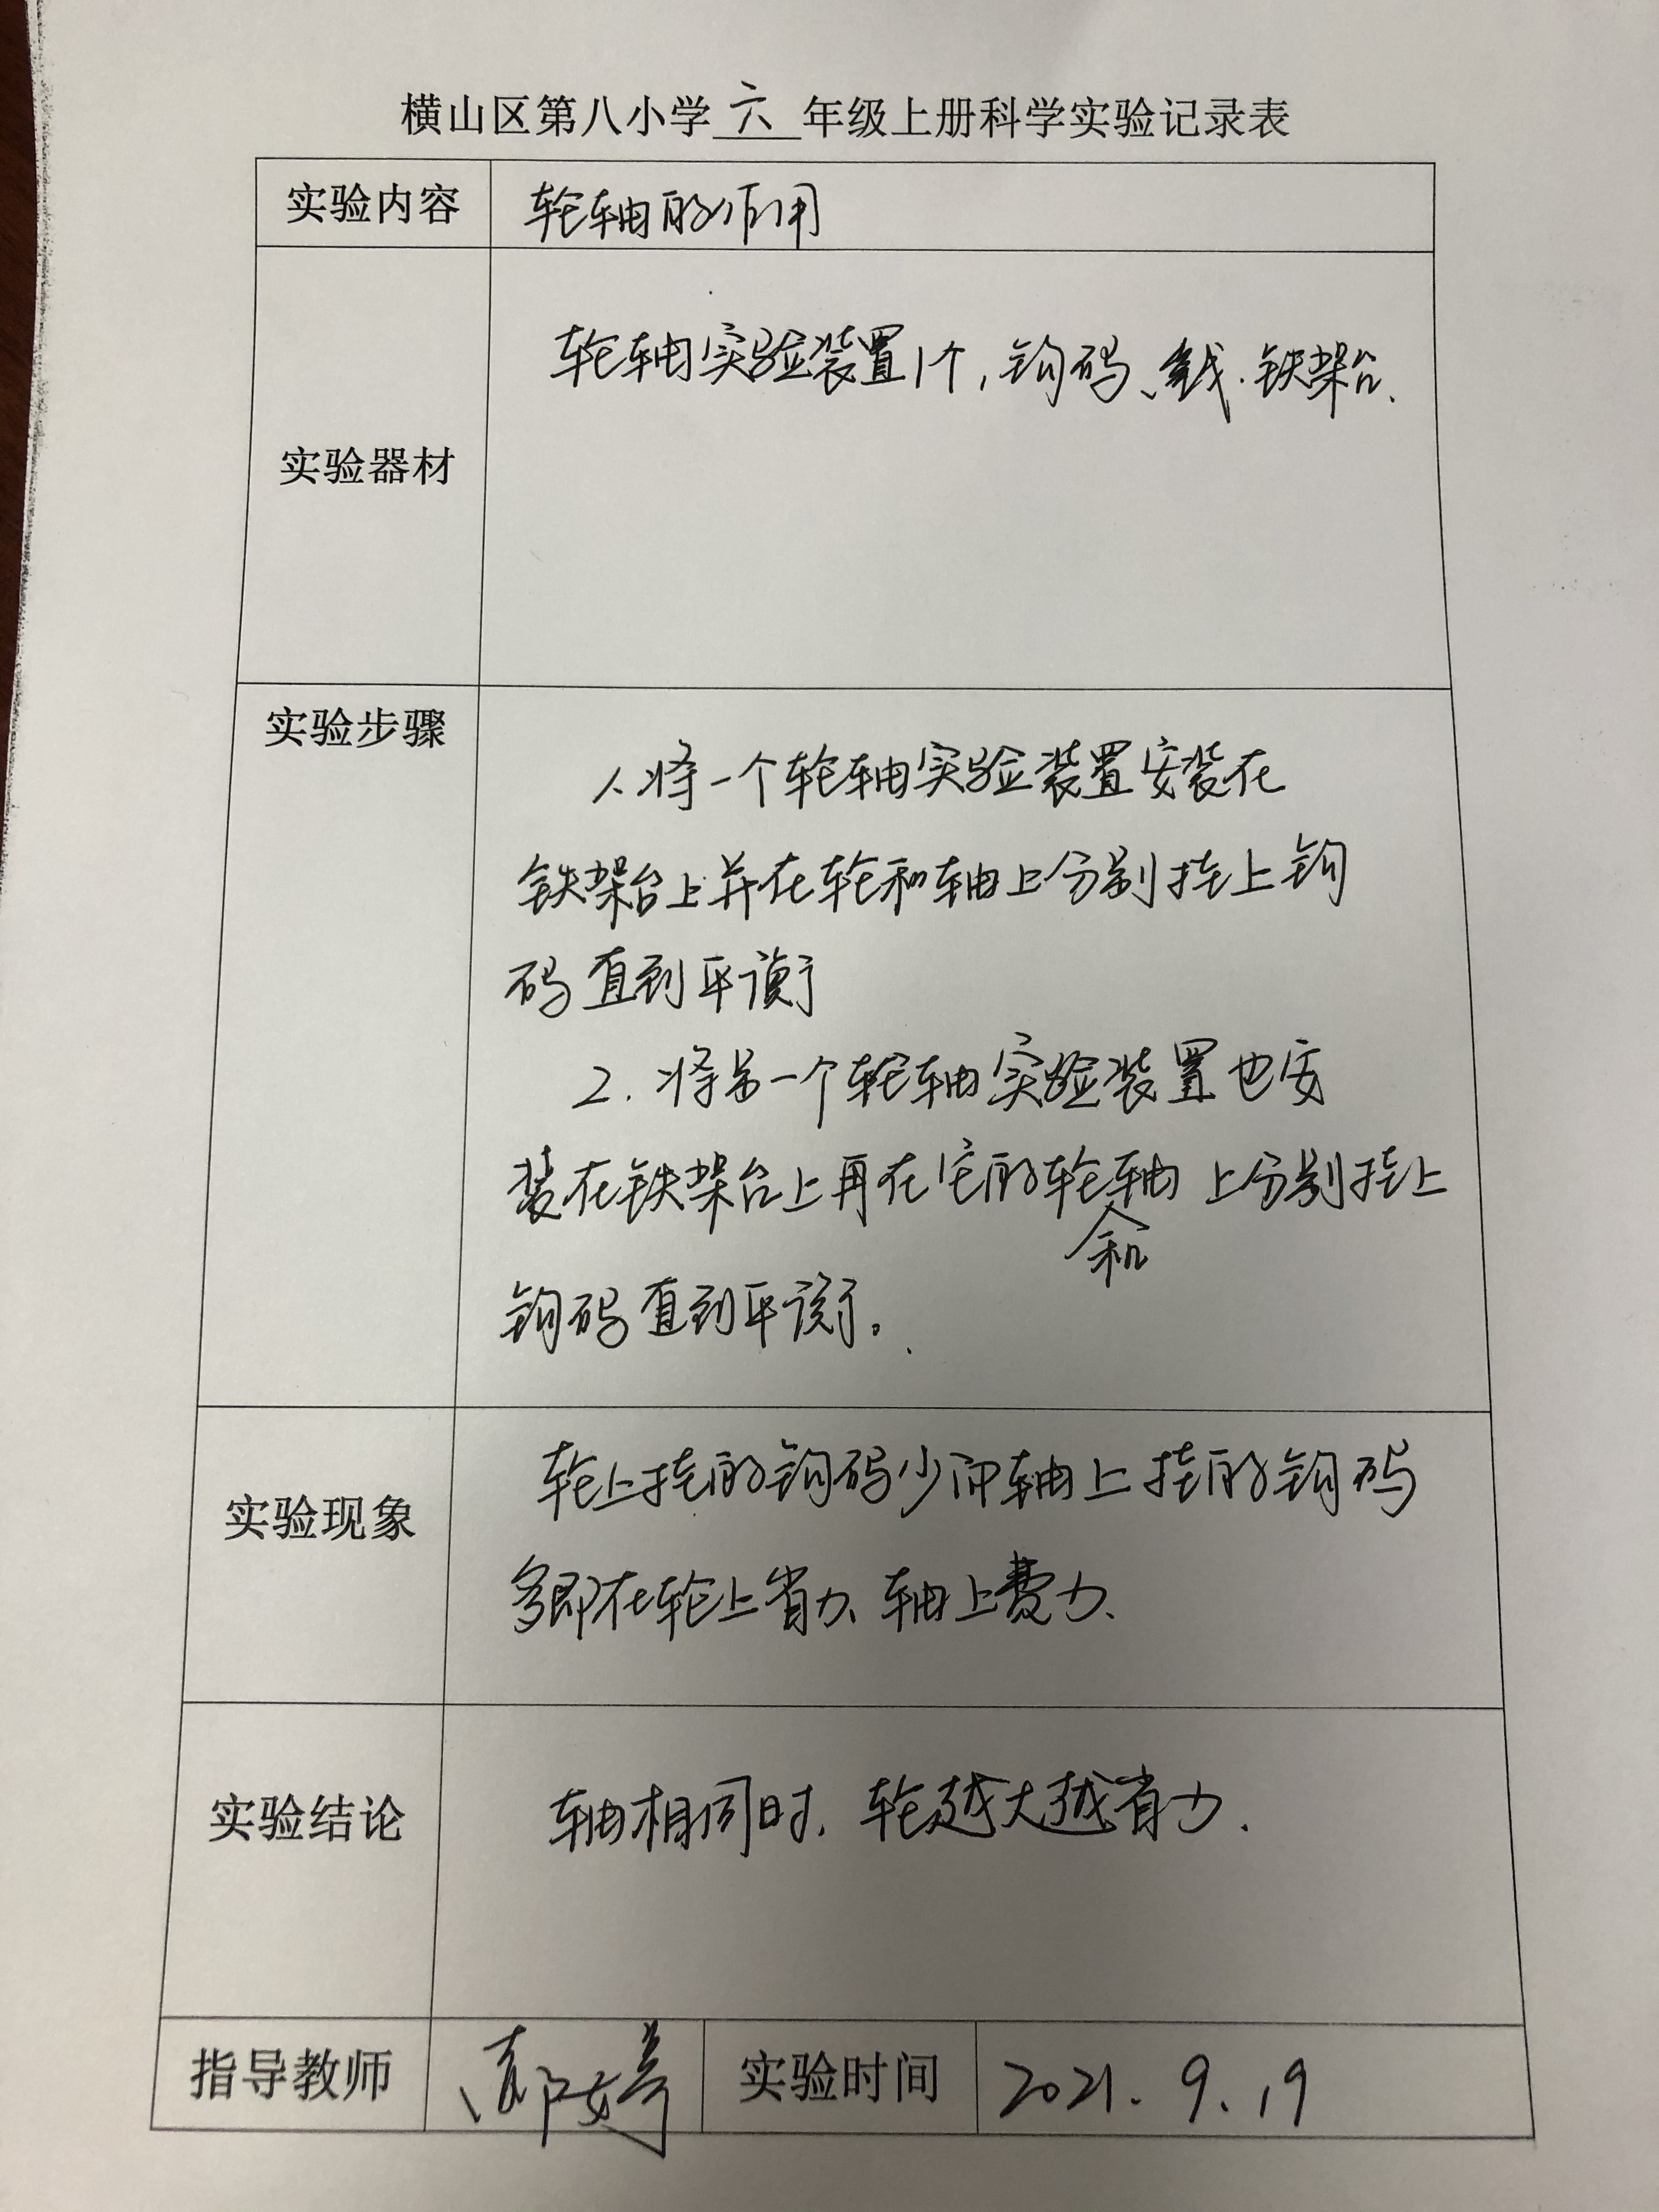 横山区第八小学六年级上册科学实验记录表
实验内容
轮轴的作用
实验器材
轮轴实验装置1个，钩码、线、铁架台、
实验步骤
1、将一个轮轴实验装置安装在
铁架台上并在轮和轴上分别挂上钩
码直到平衡
2.将另一个轮轴实验装置也安
装在铁架台上再在它的轮和轴上分别挂上
钩码直到平衡。
实验现象
轮上挂的钩码少而轴上挂的钩码
多即在轮上省力、轴上费力、
实验结论
轴相同时,轮越大越省力.
指导教师
实验时间
2021.9.19